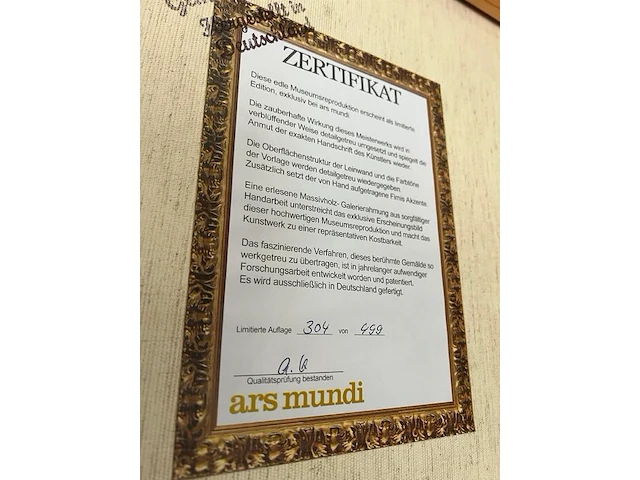 Hergestellt in
Deutschland
ZERTIFIKAT
Diese edle Museumsreproduktion erscheint als limitierte
Edition, exklusiv bei ars mundi.
Die zauberhafte Wirkung dieses Meisterwerks wird in
verblüffender Weise detailgetreu umgesetzt und spiegelt die
Anmut der exakten Handschrift des Künstlers wieder.
Die Oberflächenstruktur der Leinwand und die Farbtöne
der Vorlage werden detailgetreu wiedergegeben.
Zusätzlich setzt der von Hand aufgetragene Firnis Akzente.
Eine erlesene Massivholz- Galerierahmung aus sorgfältiger
Handarbeit unterstreicht das exklusive Erscheinungsbild
dieser hochwertigen Museumsreproduktion und macht das
Kunstwerk zu einer repräsentativen Kostbarkeit.
Das faszinierende Verfahren, dieses berühmte Gemälde so
werkgetreu zu übertragen, ist in jahrelanger aufwendiger
Forschungsarbeit entwickelt worden und patentiert.
Es wird ausschließlich in Deutschland gefertigt.
Limitierte Auflage 304 von 499
Qualitätsprüfung bestanden
ars mundi